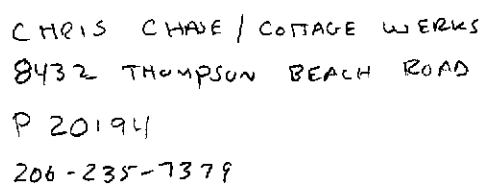 CHRIS CHASE / COTTAGE WERKS
8432 THOMPSON BEACH ROAD
P 20194
206-235-7379